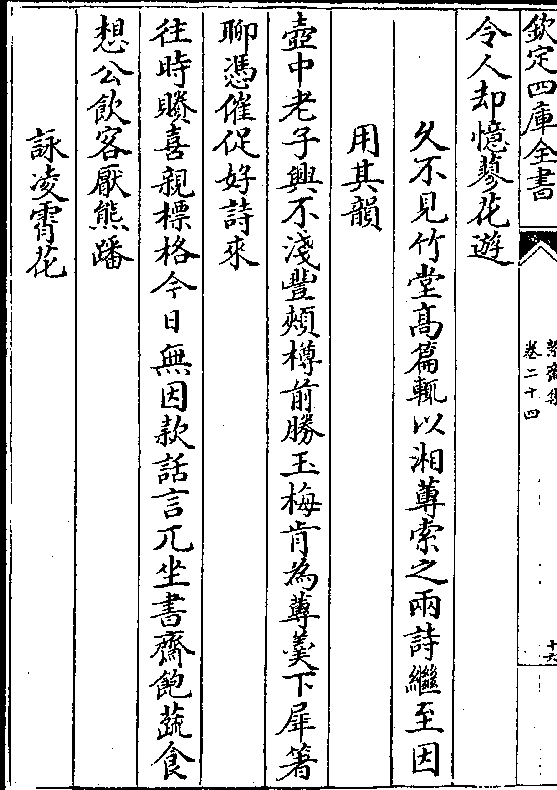 欽定四庫全書
絜齋集
卷二十四
十六
令人却憶蓼花遊
久不見竹堂髙篇輒以湘蓴索之兩詩繼至因
用其韻
壺中老子興不淺豐頰樽前勝玉梅肯為蓴羮下犀箸
聊憑催促好詩來
往時賸喜親標格今日無因款話言兀坐書齋飽蔬食
想公飲客厭熊蹯
詠凌霄花